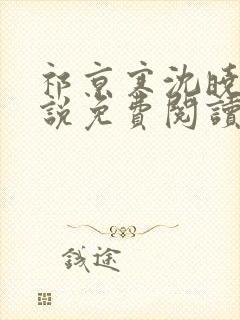 祁京寒沈晚
說免費閱讀
錢途